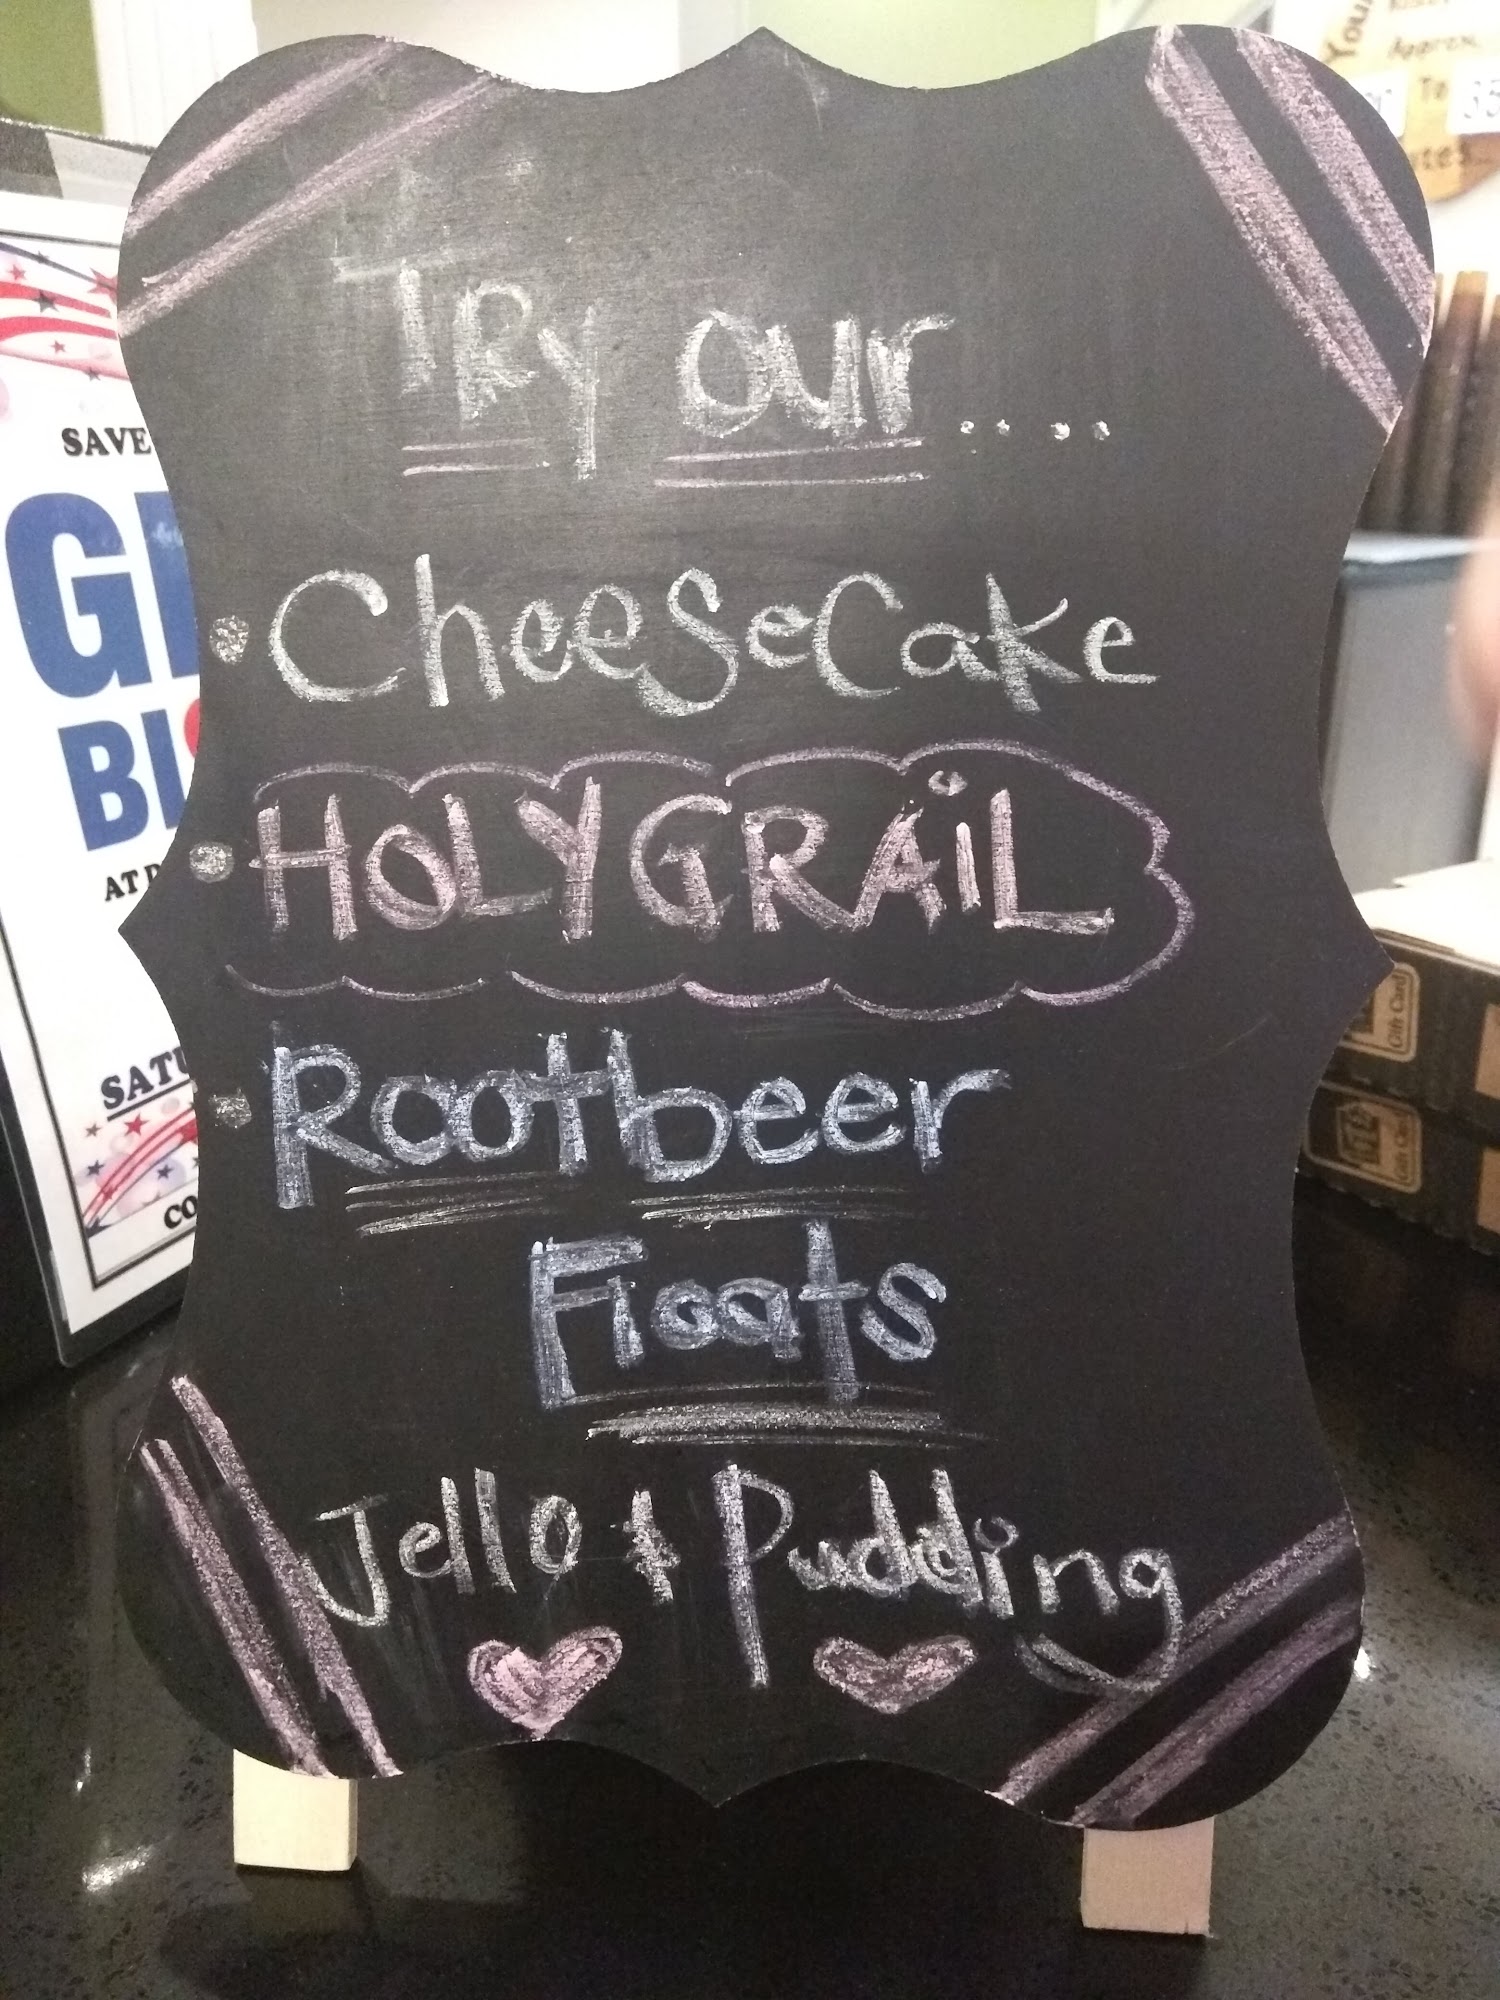 Try our....
• CheeseCake
• HOLYGRAiL
• Rootbeer
Floats
Jello & Pudding
SAVE
AT
SATU
CO
You
Approx.
To
35
Gift Card
Gift Card